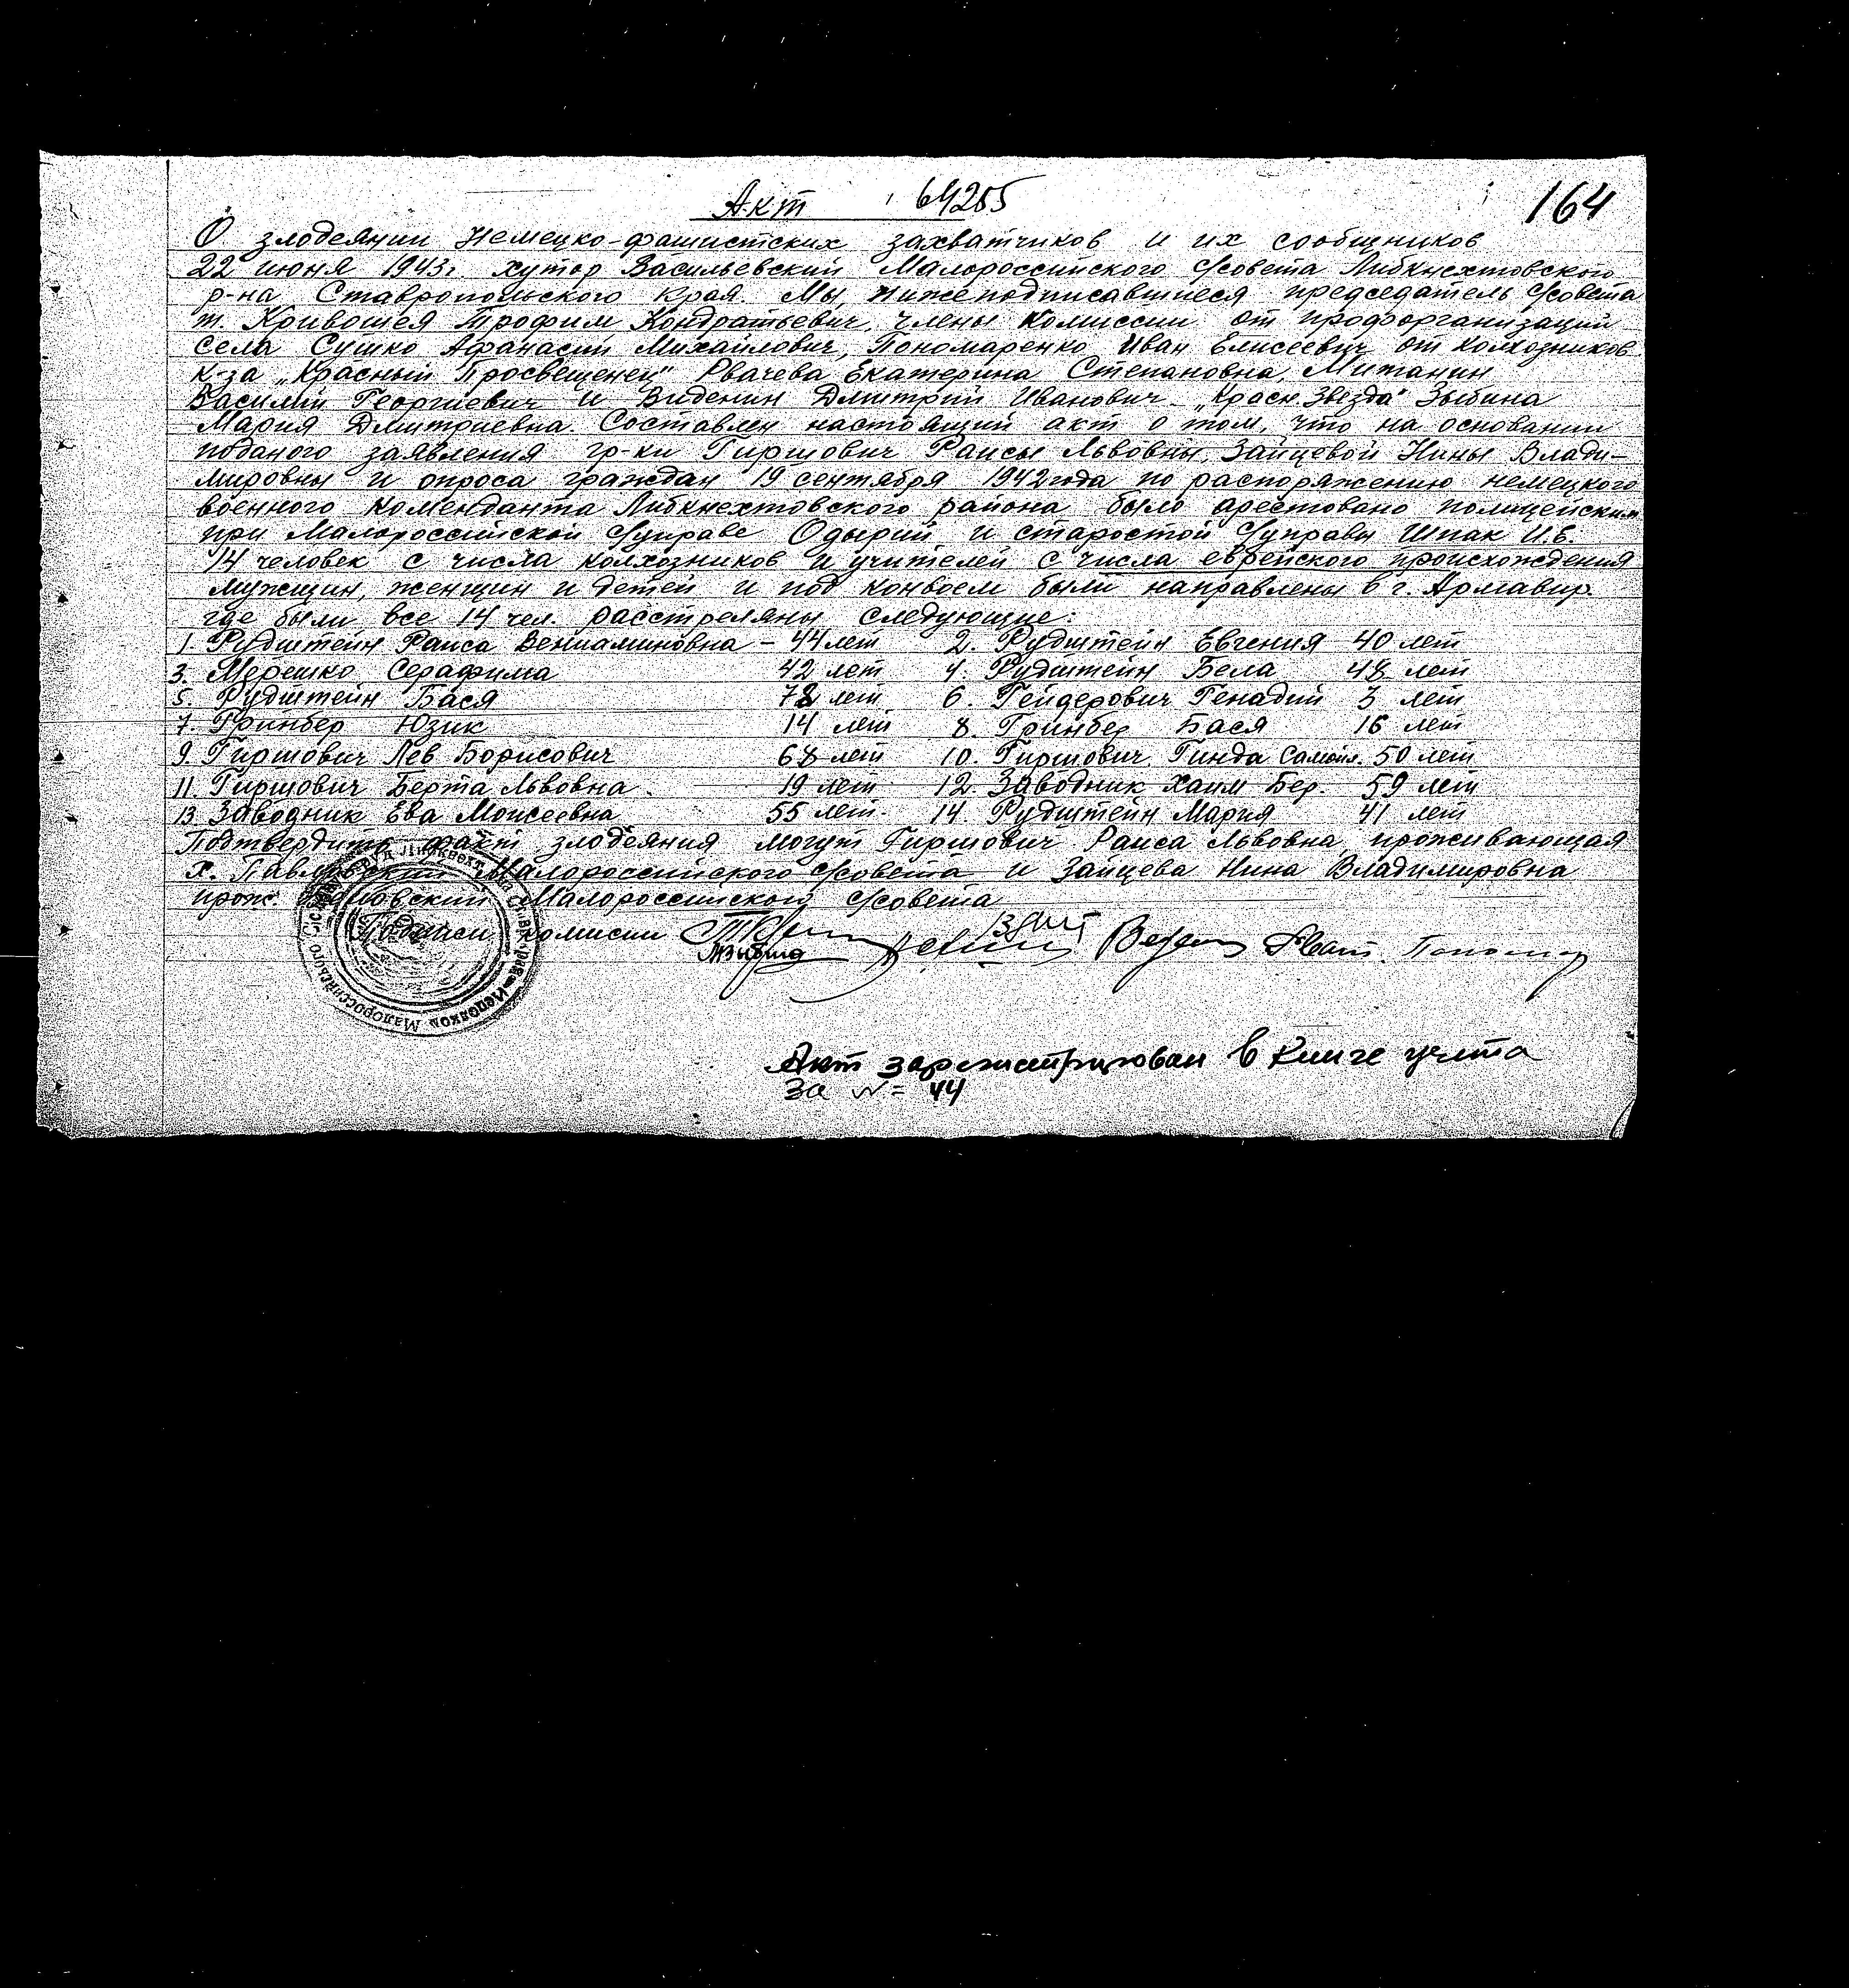 Акт 64205
164
О злодеянии Немецко-фашистских захватчиков и их сообщников
22 июня 1943г. хутор Васильевский Малороссийского с/совета Либкнехтовского
р-на Ставропольского края. Мы, нижеподписавшиеся председатель с/совета
т. Кривошея Трофим Кондратьевич, члены комиссии от профорганизаций
села Сушко Афанасий Михайлович, Пономаренко Иван Елисеевич от колхозников
к-за „Красный Просвещенец" Рвачева Екатерина Степановна, Митанин
Василий Георгиевич и Виденин Дмитрий Иванович - „Красн. Звезда" Зыбина
Мария Дмитриевна. Составлен настоящий акт о том, что на основании
поданого заявления гр-ки Гиршович Раисы Львовны, Зайцевой Нины Влади-
мировны и опроса граждан 19 сентября 1942 года по распоряжению немецкого
военного коменданта Либкнехтовского района было арестовано полицейским
при Малороссийской с/управе Одырий и старостой с/управы Шпак И.Е.
14 человек с числа колхозников и учителей с числа еврейского происхождения
мужщин, женщин и детей и под конвоем были направлены в г. Армавир.
где были все 14 чел. расстреляны следующие:
1. Рудштейн Раиса Вениаминовна - 44 лет 2. Рудштейн Евгения 40 лет
3. Мерешко Серафима 42 лет 4. Рудштейн Бела 48 лет
5. Рудштейн Бася 78 лет 6. Гейдерович Генадий 3 лет
7. Гринбер Юзик 14 лет 8. Гринбер Бася 16 лет
9. Гиршович Лев Борисович 68 лет 10. Гиршович Гинда Самойл. 50 лет
11. Гиршович Берта Львовна. 19 лет 12. Заводник Хаим Бер. 59 лет
13. Заводник Ева Моисеевна 55 лет. 14. Рудштейн Мария 41 лет
Подтвердить факт злодеяния могут Гиршович Раиса Львовна, проживающая
х. Павловский Малороссийского с/совета и Зайцева Нина Владимировна
прож. Малороссийского с/совета
Подписи комисии Зыбина Пономар
Малороссийского Исполком
Акт зарегистрирован в Книге учета
За №= 44